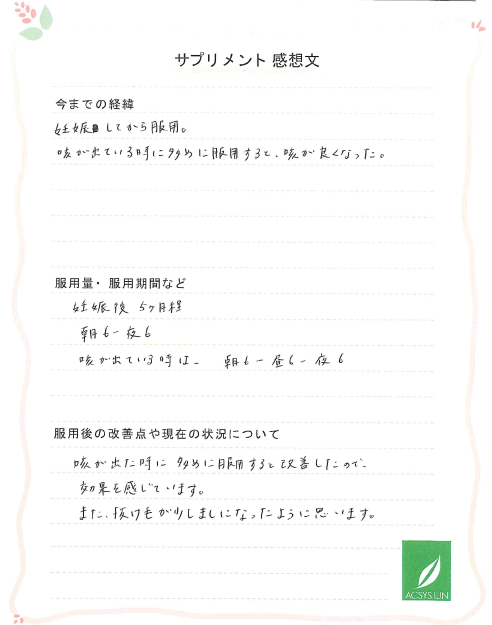 サプリメント 感想文
今までの経緯
妊娠してから服用。
咳が出ている時に多めに服用すると、咳が良くなった。
服用量・服用期間など
妊娠後 5ヶ月程
朝6-夜6
咳が出ている時は、 朝6-昼6-夜6
服用後の改善点や現在の状況について
咳が出た時に多めに服用すると改善したので、
効果を感じています。
また、抜け毛が少しましになったように思います。
ACSYS IJIN